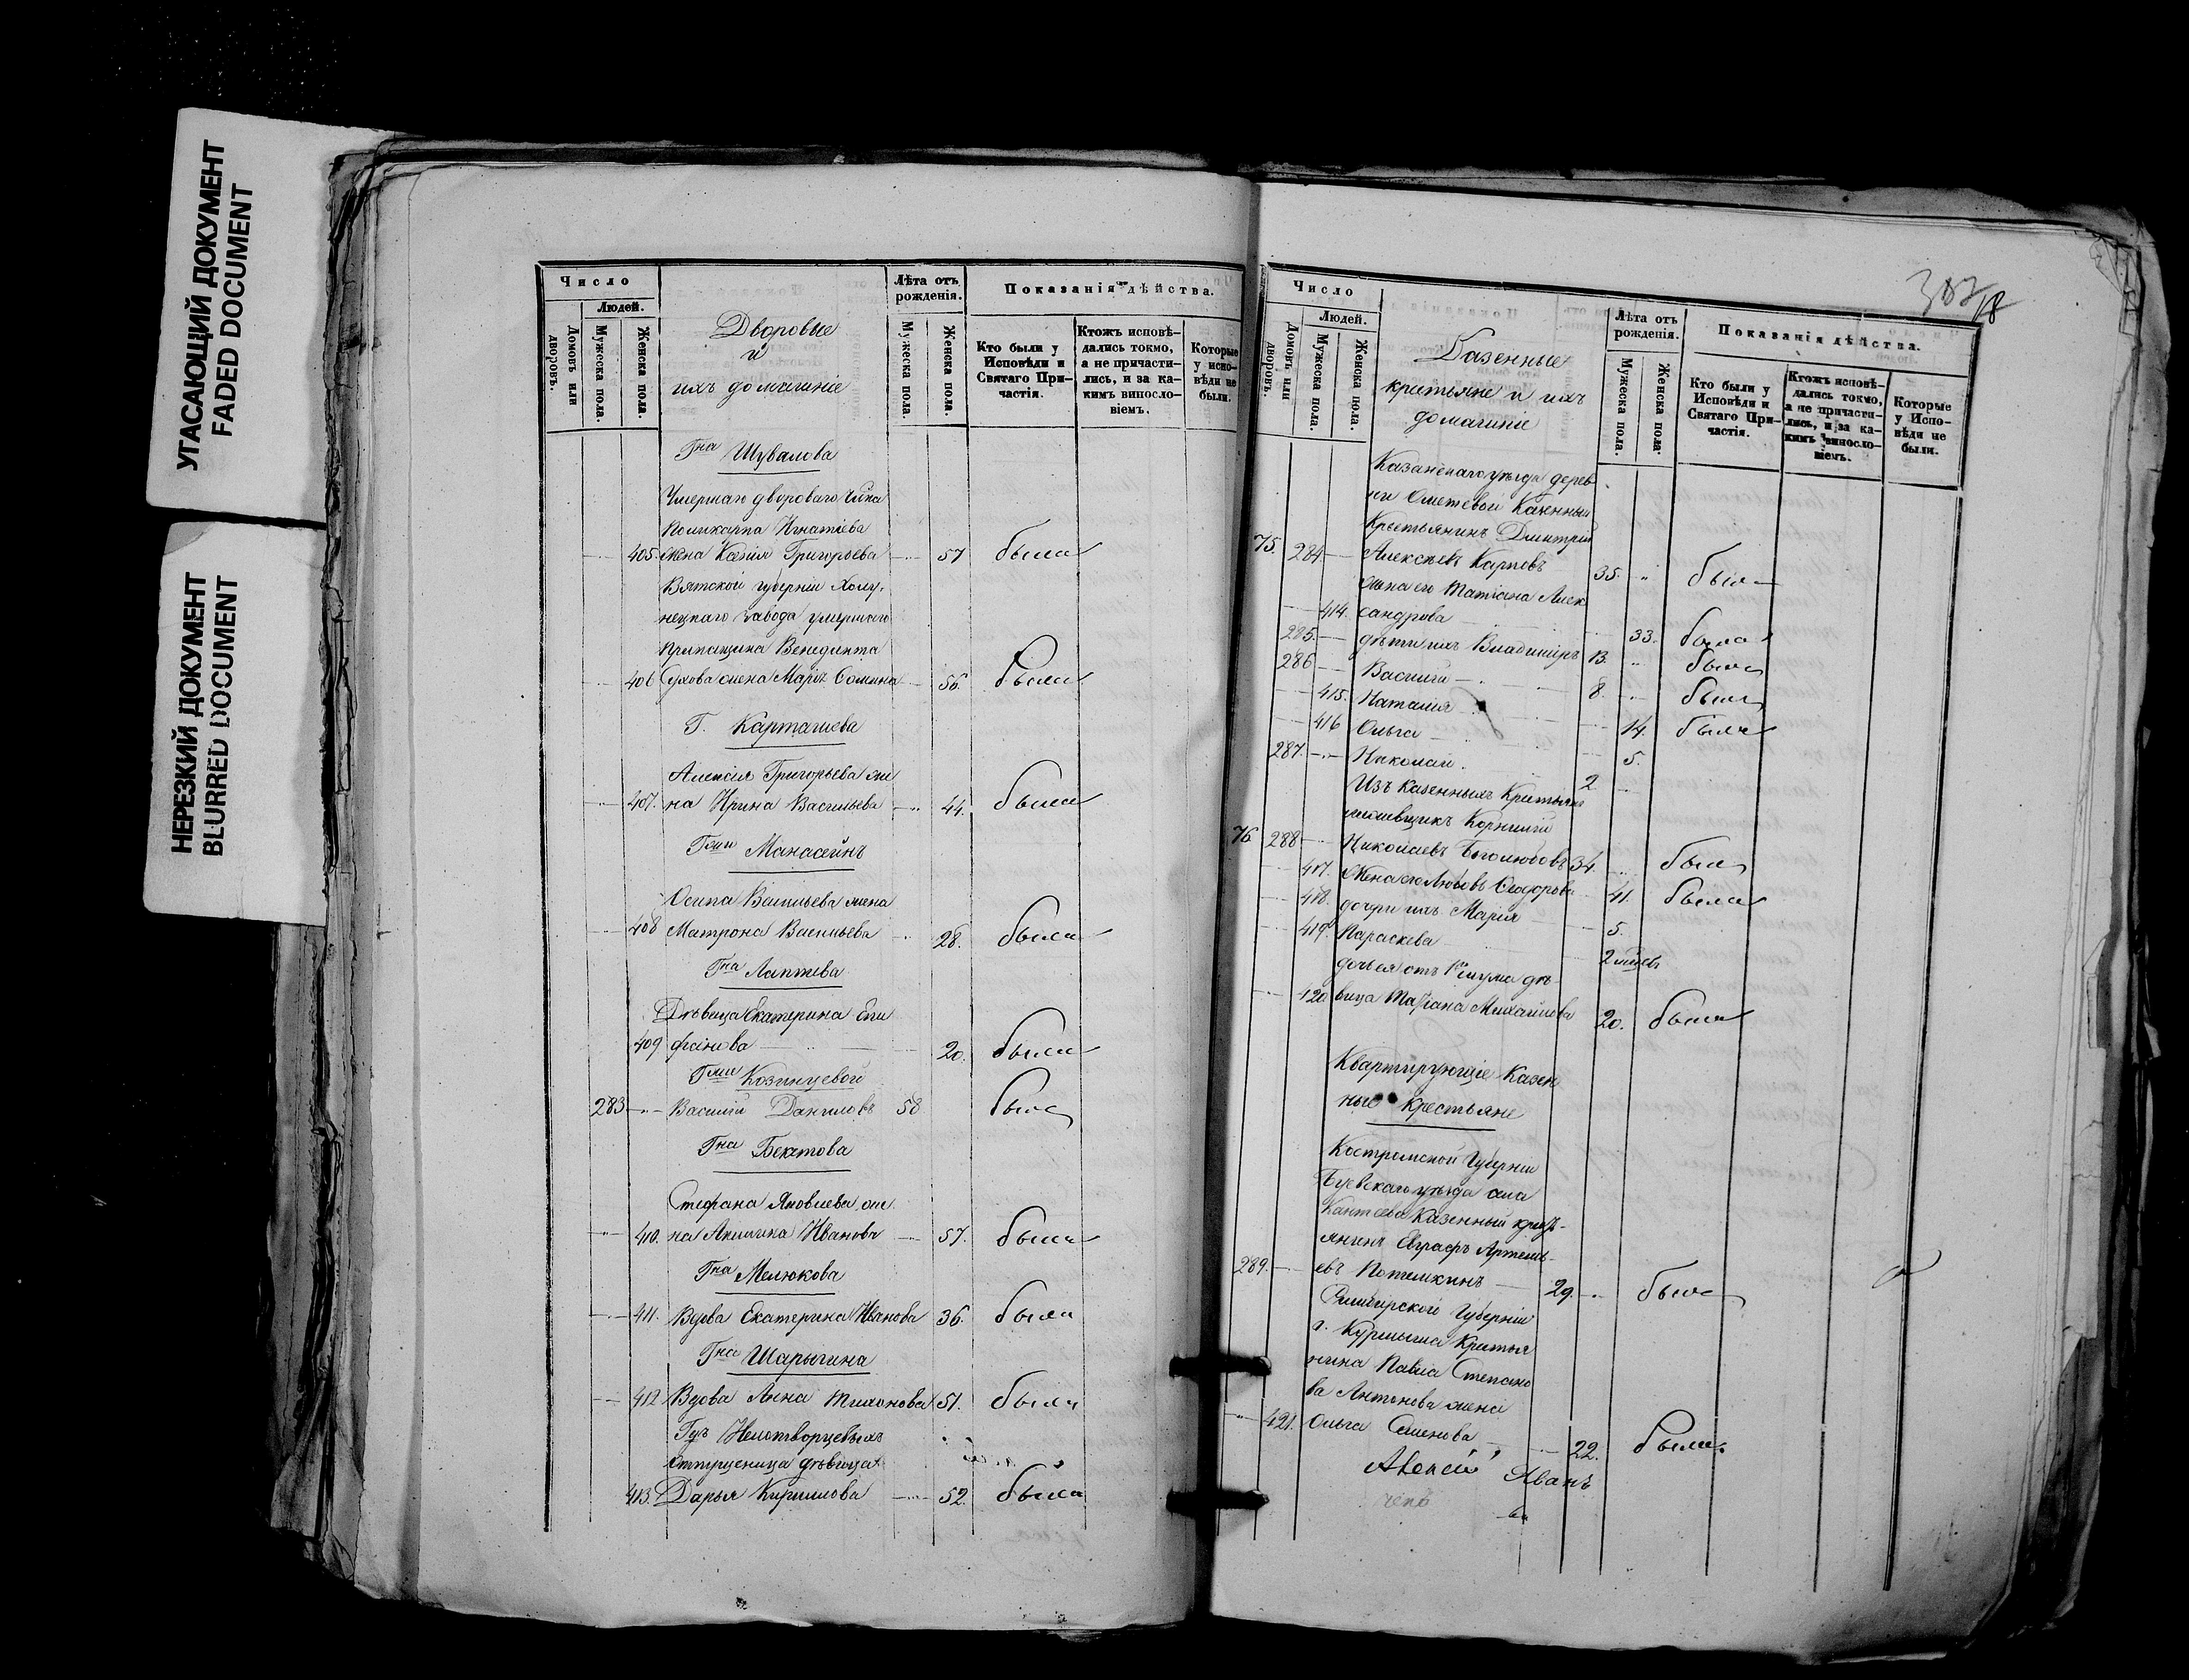 УГАСАЮЩИЙ ДОКУМЕНТ
FADED DOCUMENT
НЕРЕЗКИЙ ДОКУМЕНТ
BLURRED DOCUMENT
Число
Людей.
Домовъ или дворовъ.
Мужеска пола.
Женска пола.
Дворовые
и
ихъ домашніе
Лѣта отъ рожденія.
Мужеска пола.
Женска пола.
Показанія дѣйства.
Кто были у Исповѣди и Святаго Причастія.
Ктожъ исповѣдались токмо, а не причастились, и за какимъ винословіемъ.
Которые у исповѣди не были.
Гна Шувалова
Умершаго дворового
Поликарпа Игнатіева
405. жена Ксенія Григорьева 57 была
Вятской губерніи Холу-
нецкаго завода умершаго
Венедикта
406 жена Марія 56. была
Г. Карташева
Алексія Григорьева же
407. на Ирина Васильева 44. была
Гжи Манасеинъ
Осипа Васильева жена
408 Матрона Васильева 28. была
Гна Лаптева
Дѣвица Екатерина Епи
409 фанова 20. была
Гжи Козинцевой
283 Василій Даниловъ 58 былъ
Гна Бекетова
Стефана Яковлева же
410. на Акилина Иванова 57. была
Гна Мелюкова
411. Вдова Екатерина Иванова 36. была
Гна Шарыгина
412 Вдова Анна Тихонова 51. была
Гдъ Нелотворцевыхъ
отпущеница дѣвица
413. Дарья Кирилова 52. была
Число
Людей.
Домовъ или дворовъ.
Мужеска пола.
Женска пола.
Казенные
крестьяне и ихъ
домашніе
Лѣта отъ рожденія.
Мужеска пола.
Женска пола
Показанія дѣйства.
Кто были у Исповѣди и Святаго Причастія.
Ктожъ исповѣдались токмо, а не причастились, и за какимъ винословіемъ.
Которые у Исповѣди не были.
Казанскаго уѣзда дерев
ни Ометевой Казенный
Крестьянинъ Дмитрій
75. 284. Алексѣевъ Карповъ 35. былъ
жена его Татіана Алек
414. сандрова 33. была
285. дѣти ихъ Владиміръ 13. былъ
286 Василій 8. былъ
415. Наталія 14. была
416 Ольга 5.
287. Николай 2
Изъ казенныхъ Крестьянъ
Корнилій
76 288 Николаевъ Боголюбовъ 34. былъ
417. Жена его Любовь Ѳеодорова 41. была
418. дочери ихъ Марія 5.
419. Параскева 2 мѣсяц
дочь ея отъ 1го мужа дѣ-
420 вица Татіана Михайлова 20. была
Квартирующіе Казен
ные Крестьяне
Костромской Губерніи
Буевскаго уѣзда села
Казенный крест-
янинъ Евграфъ Артемь-
289. евъ Потемкинъ 29. былъ
Симбирской Губерніи
г. Курмыша Крестья
нина Павла Степано
ва Антонова жена
421. Ольга Семенова 22. была
Алексій Иванъ